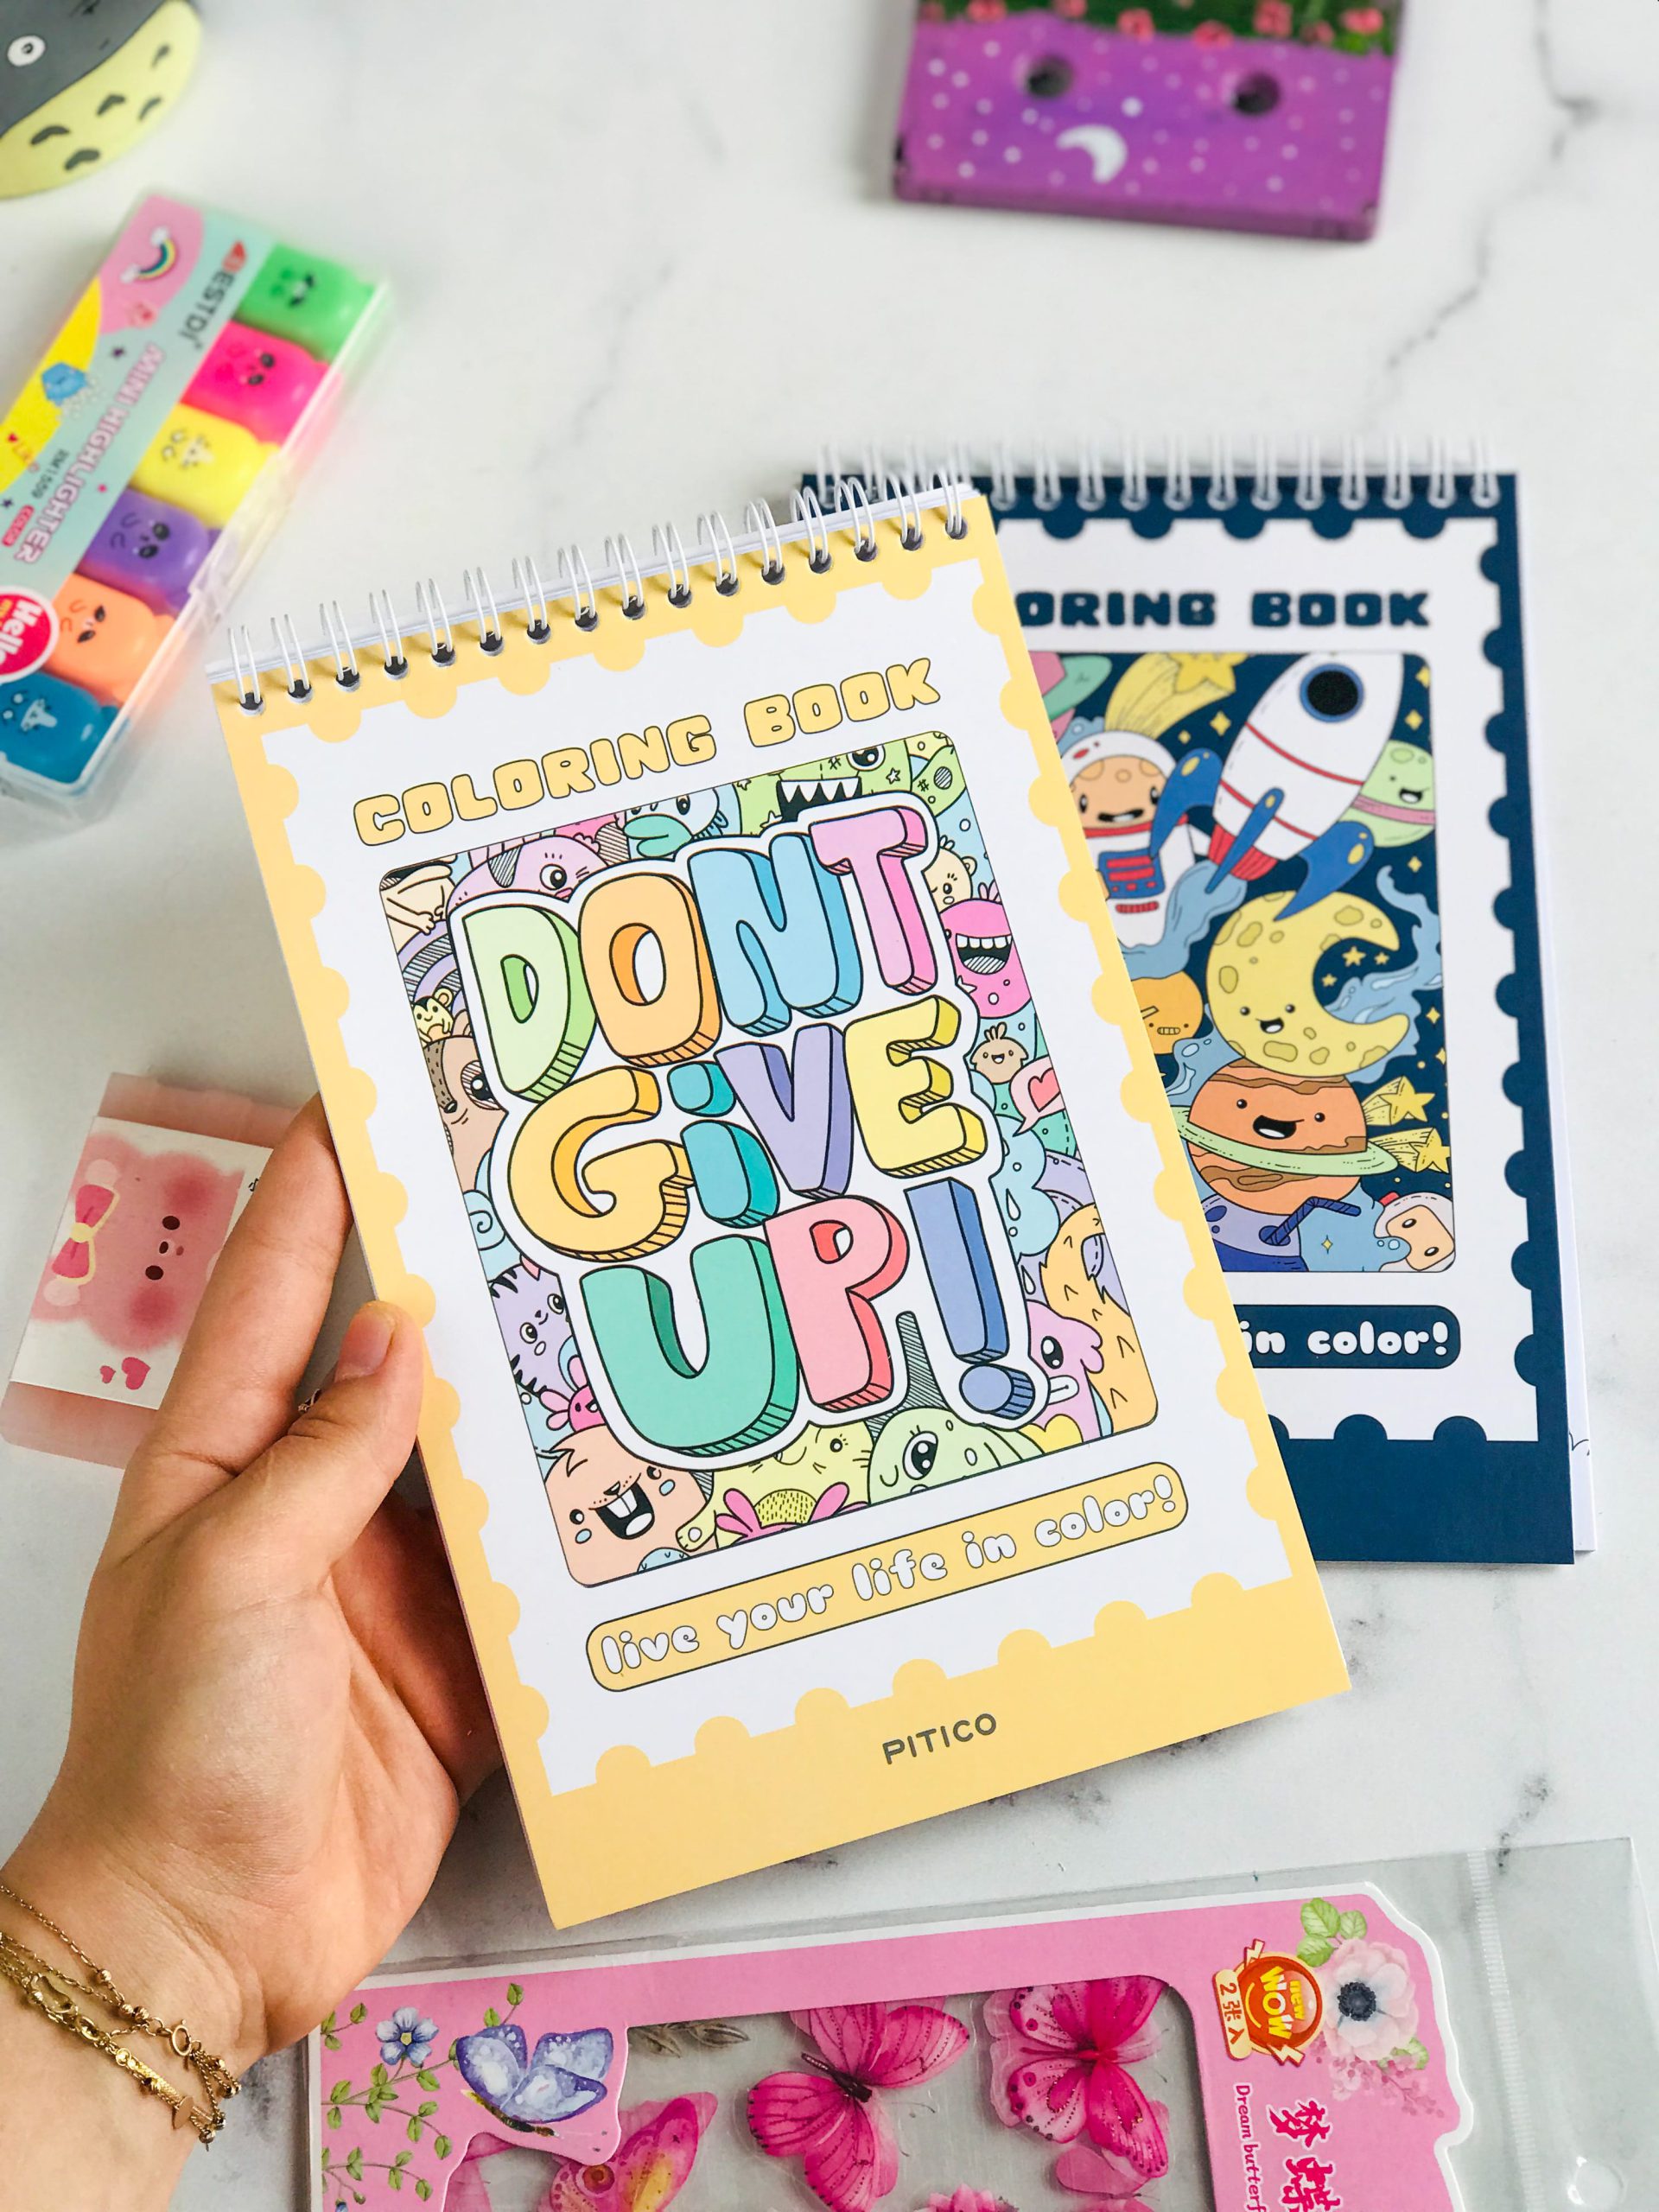 BESTDI
MINI HIGHLIGHTER
COLORING BOOK
DONT
GiVE
UP!
live your life in color!
PITICO
ORING BOOK
in color!
new
WOW
2张入
梦
蝶